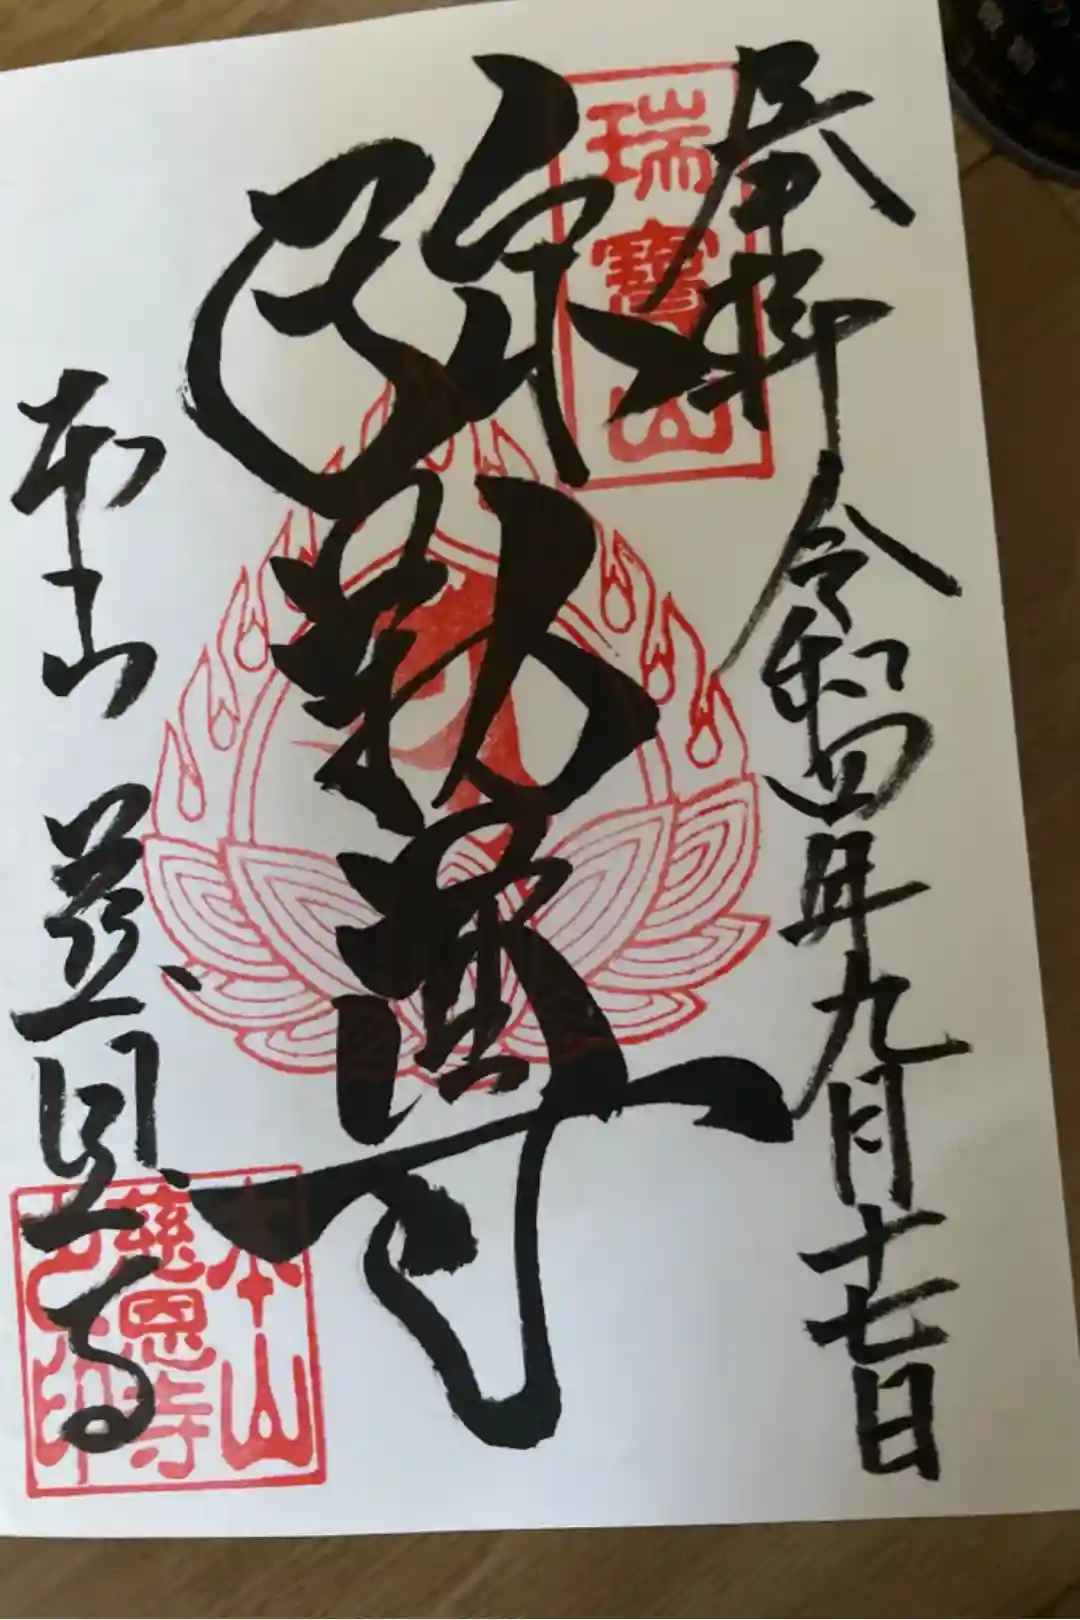 奉拝 令和四年九月十七日
瑞寶山
弥勒尊
本山 慈恩寺
本山
慈恩寺
之印